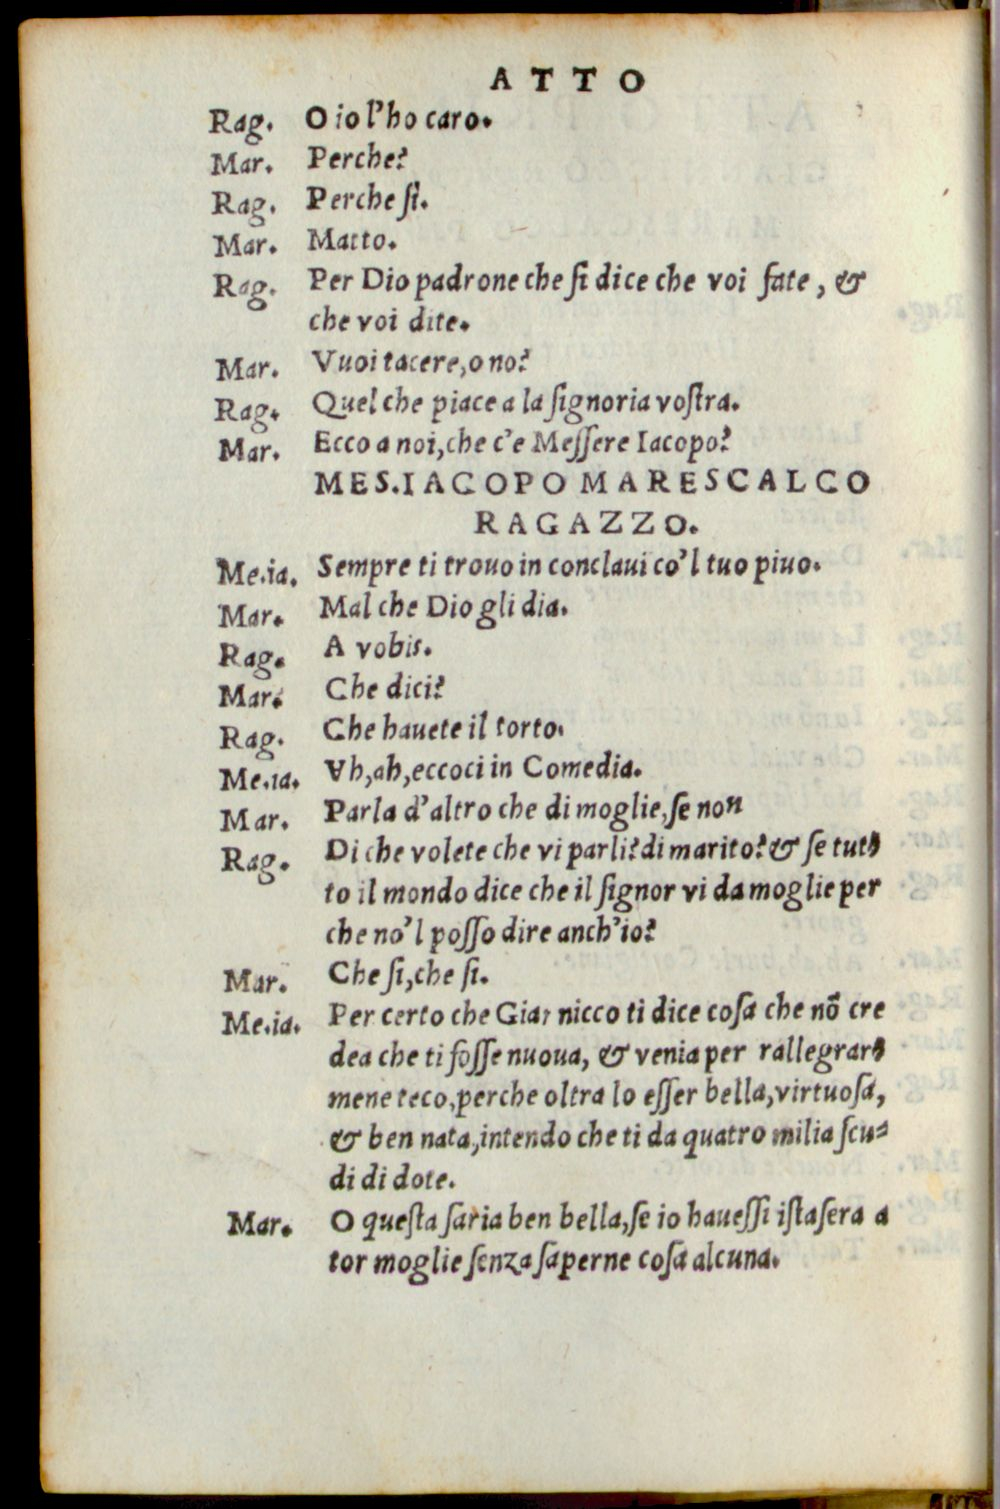 ATTO
Rag. O io l'ho caro.
Mar. Perche?
Rag. Perche ſi.
Mar. Matto.
Rag. Per Dio padrone che ſi dice che voi fate, &
che voi dite.
Mar. Vuoi tacere, o no?
Rag. Quel che piace a la ſignoria voſtra.
Mar. Ecco a noi, che c'e Meſſere Iacopo?
MES. IACOPO MARESCALCO
RAGAZZO.
Me.ia. Sempre ti trouo in conclaui co'l tuo piuo.
Mar. Mal che Dio gli dia.
Rag. A vobis.
Mar. Che dici?
Rag. Che hauete il torto.
Me.ia. Ah, ah, eccoci in Comedia.
Mar. Parla d'altro che di moglie, ſe non
Rag. Di che volete che vi parli? di marito? & ſe tut-
to il mondo dice che il ſignor vi da moglie per
che no'l poſſo dire anch'io?
Mar. Che ſi, che ſi.
Me.ia. Per certo che Giannicco ti dice coſa che nõ cre
dea che ti foſſe nuoua, & venia per rallegrar-
mene teco, perche oltra lo eſſer bella, virtuoſa,
& ben nata, intendo che ti da quatro milia ſcu-
di di dote.
Mar. O queſta ſaria ben bella, ſe io haueſſi iſtaſera a
tor moglie ſenza ſaperne coſa alcuna.